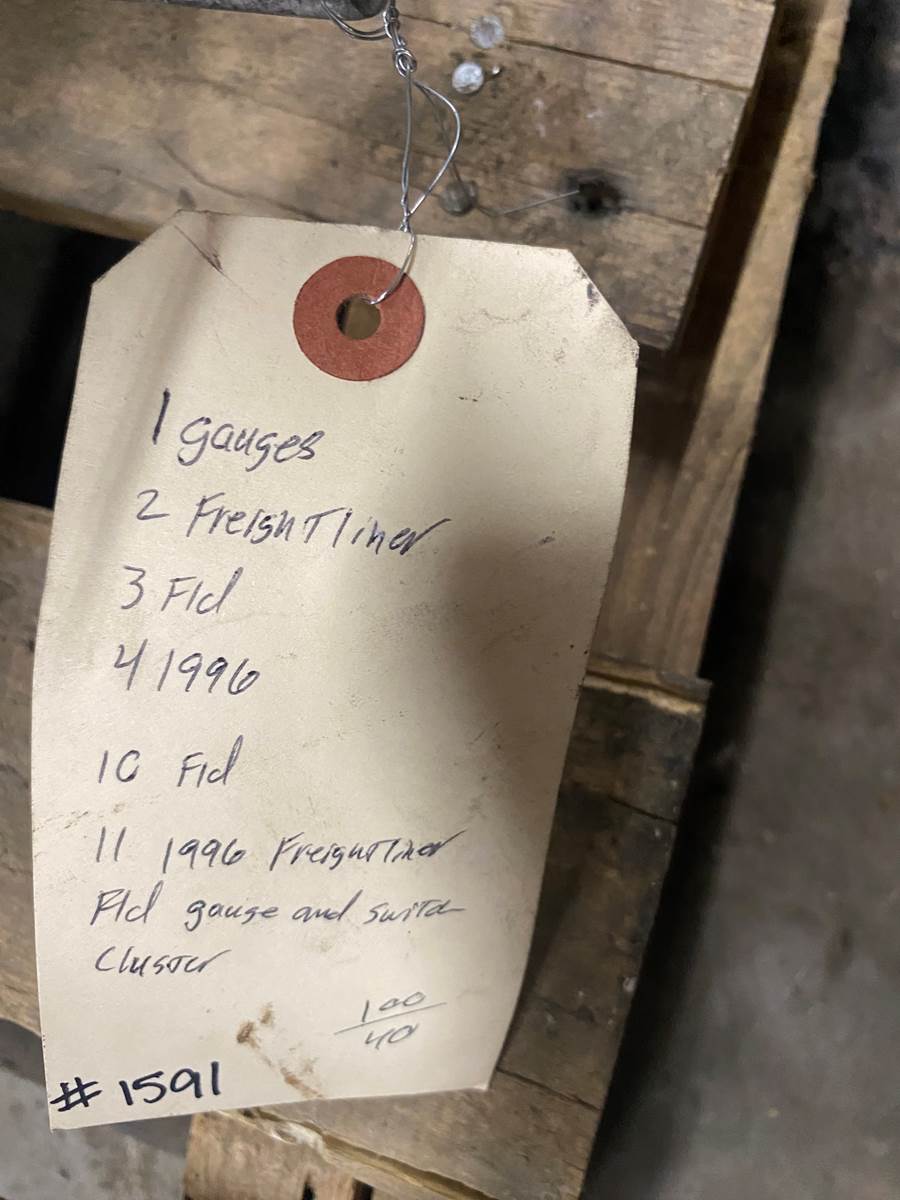 1 gauges
2 Freightliner
3 Fld
4 1996
10 Fld
11 1996 Freightliner
Fld gauge and switch
Cluster
100
40
# 1591